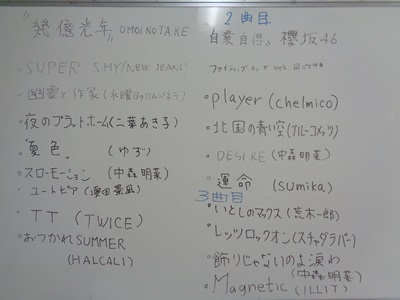 "幾億光年" OMOINOTAKE
・SUPER SHY(NEW JEANS)
・幽霊と作家(水曜日のカンパネラ)
・夜のプラットホーム(二葉あき子)
・夏色 (ゆず)
・スローモーション(中森明菜)
・ユートピア(濱田景凪)
・TT (TWICE)
・おつかれSUMMER
(HALCALI)
2曲目
自業自得、櫻坂46
ファイティング
・player(chelmico)
・北国の青い空(ブルーコメッツ)
・DESIRE (中森明菜)
・運命 (sumika)
3曲目
・いとしのマックス(荒木一郎)
・レッツロックオン(スチャダラパー)
・飾りじゃないのよ涙わ
(中森明菜)
・Magnetic (ILLIT)